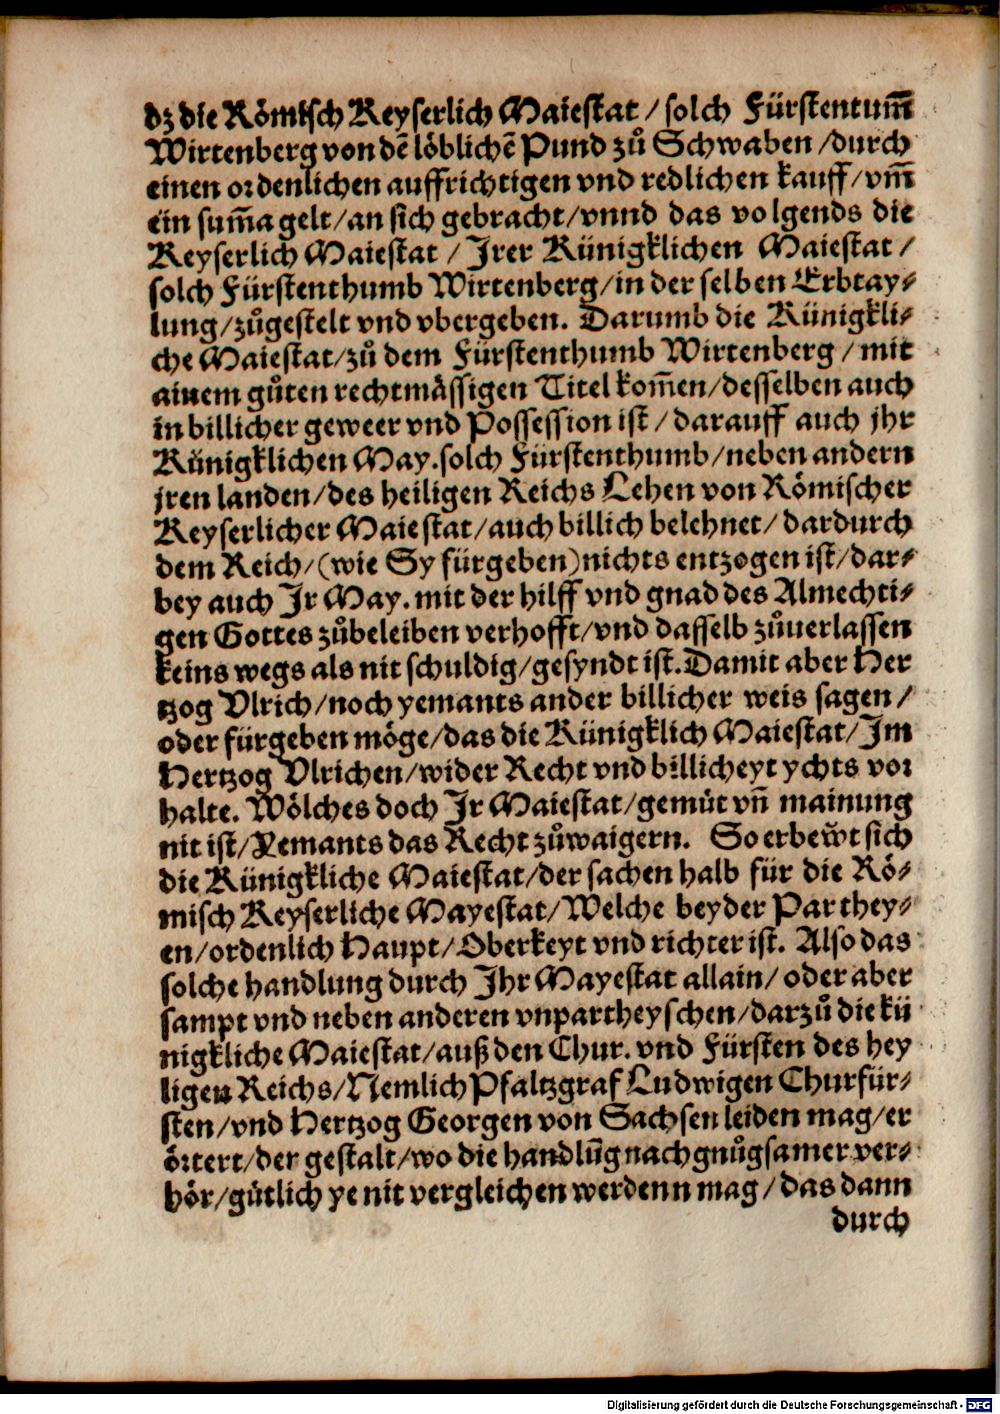 dz die Römisch Keyserlich Maiestat / solch Fürstentum̄
Wirtenberg von dē löblichē Pund zů Schwaben / durch
einen ordenlichen auffrichtigen vnd redlichen kauff / vm̄
ein sum̄a gelt / an sich gebracht / vnnd das volgends die
Keyserlich Maiestat / Jrer Künigklichen Maiestat /
solch Fürstenthumb Wirtenberg / in der selben Erbtay⸗
lung / zůgestelt vnd vbergeben. Darumb die Künigkli⸗
che Maiestat / zů dem Fürstenthumb Wirtenberg / mit
ainem gůten rechtmässigen Titel kom̄en / desselben auch
in billicher geweer vnd Possession ist / darauff auch jhr
Künigklichen May. solch Fürstenthumb / neben andern
jren landen / des heiligen Reichs Lehen von Römischer
Keyserlicher Maiestat / auch billich belehnet / dardurch
dem Reich / (wie Sy fürgeben) nichts entzogen ist / dar⸗
bey auch Jr May. mit der hilff vnd gnad des Almechti⸗
gen Gottes zůbeleiben verhofft / vnd dasselb zůuerlassen
keins wegs als nit schuldig / gesyndt ist. Damit aber Her
tzog Vlrich / noch yemants ander billicher weis sagen /
oder fürgeben möge / das die Künigklich Maiestat / Jm
Hertzog Vlrichen / wider Recht vnd billicheyt ychts vor
halte. Wölches doch Jr Maiestat / gemüt vn̄ mainung
nit ist / Yemants das Recht zůwaigern. So erbew̌t sich
die Künigkliche Maiestat / der sachen halb für die Rö⸗
misch Keyserliche Mayestat / Welche beyder Parthey⸗
en / ordenlich Haupt / Oberkeyt vnd richter ist. Also das
solche handlung durch Jhr Mayestat allain / oder aber
sampt vnd neben anderen vnpartheyschen / darzů die kü
nigkliche Maiestat / auß den Chur. vnd Fürsten des hey
ligen Reichs / Nemlich Pfaltzgraf Ludwigen Churfür⸗
sten / vnd Hertzog Georgen von Sachsen leiden mag / er
örtert / der gestalt / wo die handlūg nach gnůgsamer ver⸗
hör / gütlich ye nit vergleichen werdenn mag / das dann
durch
Digitalisierung gefördert durch die Deutsche Forschungsgemeinschaft - DFG